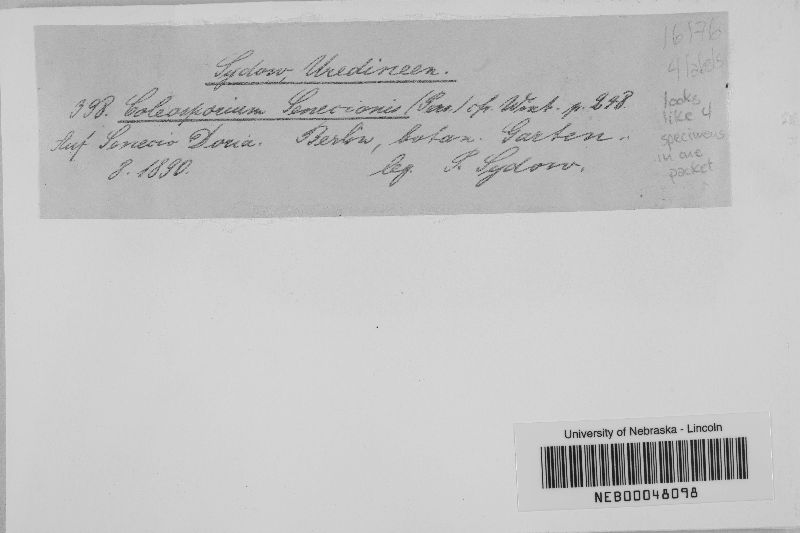 Sydow, Uredineen.
398. Coleosporium Senecionis (Pers.) cfr. Wint. p. 248.
Auf Senecio Doria. Berlin, botan. Garten.
8. 1890. leg. P. Sydow.
16176
4 labels
looks
like 4
specimens
in one
packet
University of Nebraska - Lincoln
NEB00048098